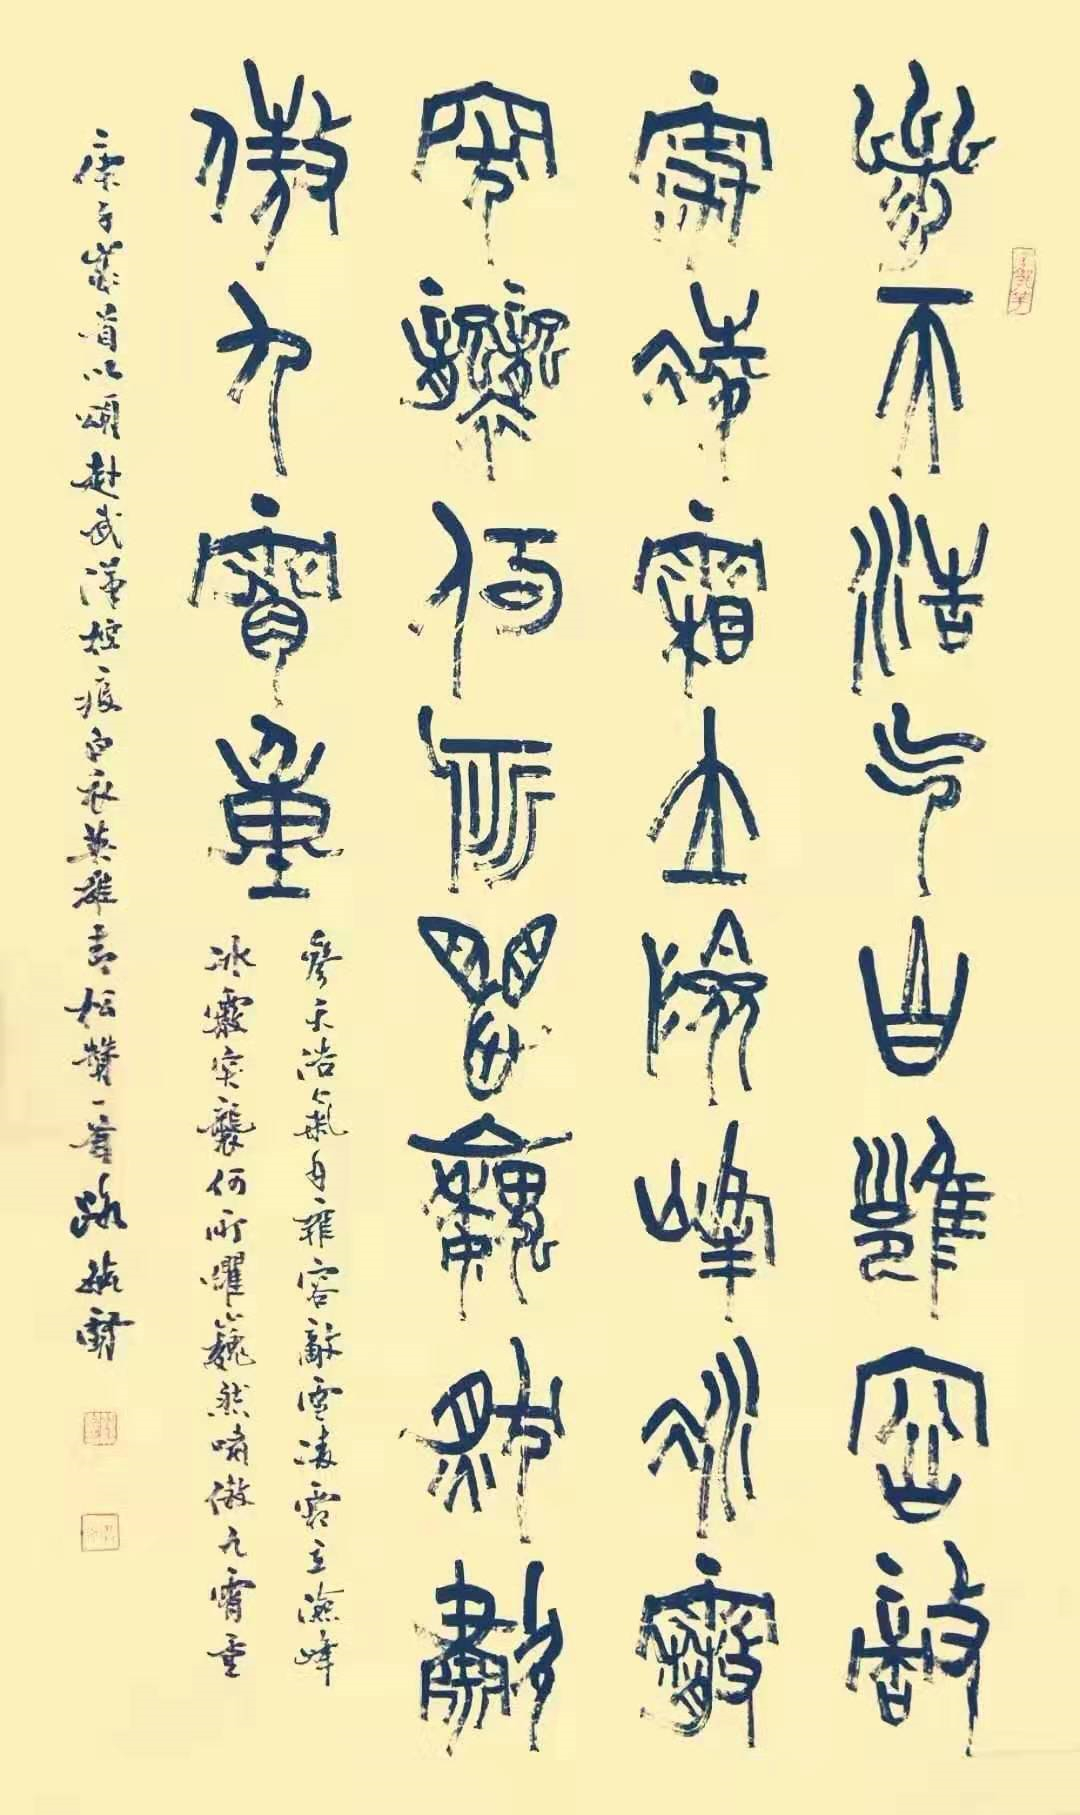 參天浩气自雝容敵
雪凌霜立險峰冰霰
突襲何所懼巍然嘯
傲九霄重
參天浩氣自雍容敵雪凌霜立險峰
冰霰突襲何所懼巍然嘯傲九霄重
庚子歲首以頌赴武漢控疫白衣英雄青松贊一首路毓賢